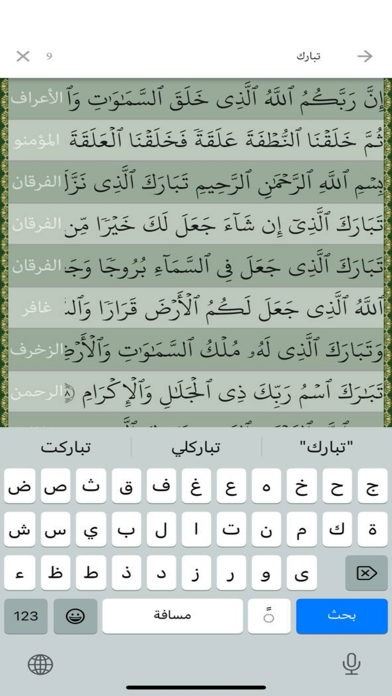 تبارك ٩
إِنَّ رَبَّكُمُ ٱللَّهُ ٱلَّذِى خَلَقَ ٱلسَّمَٰوَٰتِ وَٱ الأعراف
ثُمَّ خَلَقْنَا ٱلنُّطْفَةَ عَلَقَةً فَخَلَقْنَا ٱلْعَلَقَةَ المؤمنو
بِسْمِ ٱللَّهِ ٱلرَّحْمَٰنِ ٱلرَّحِيمِ تَبَارَكَ ٱلَّذِى نَزَّلَ الفرقان
تَبَارَكَ ٱلَّذِىٓ إِن شَآءَ جَعَلَ لَكَ خَيْرًا مِّن الفرقان
تَبَارَكَ ٱلَّذِى جَعَلَ فِى ٱلسَّمَآءِ بُرُوجًا وَجَ الفرقان
ٱللَّهُ ٱلَّذِى جَعَلَ لَكُمُ ٱلْأَرْضَ قَرَارًا وَٱلسَّ غافر
وَتَبَارَكَ ٱلَّذِى لَهُۥ مُلْكُ ٱلسَّمَٰوَٰتِ وَٱلْأَرْضِ الزخرف
تَبَٰرَكَ ٱسْمُ رَبِّكَ ذِى ٱلْجَلَٰلِ وَٱلْإِكْرَامِ الرحمن
"تبارك" تباركلي تباركت
ج ح خ ه ع غ ف ق ث ص ض
ة ك م ن ت ا ل ب ي س ش
ى و ر ز د ذ ط ظ ء
بحث مسافة 123